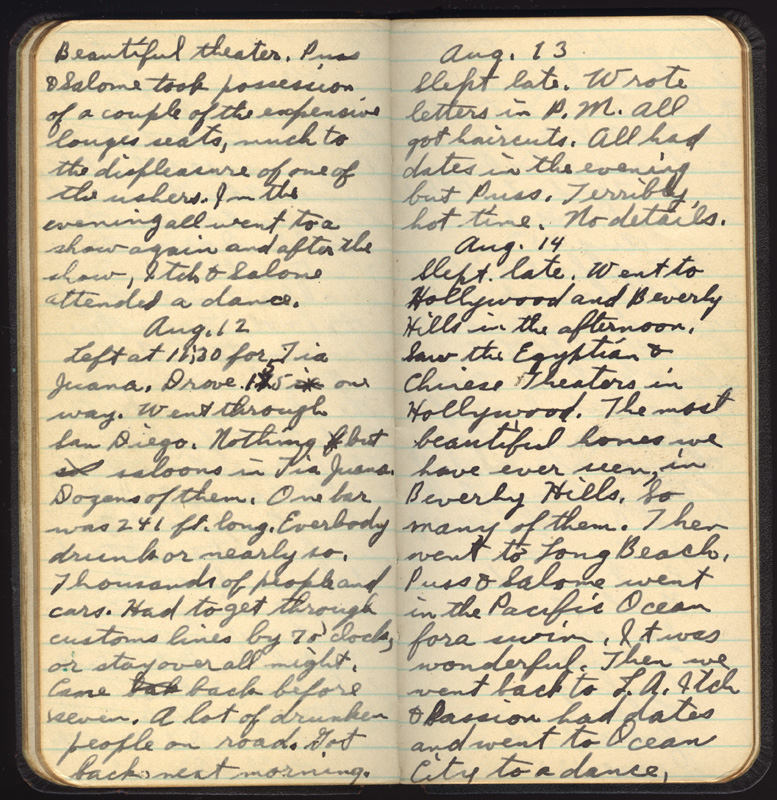 Beautiful theater. Puss
& Salome took possession
of a couple of the expensive
louges seats, much to
the displeasure of one of
the ushers. In the
evening all went to a
show again and after the
show, Itch & Salome
attended a dance.
Aug. 12
Left at 11:30 for Tia
Juana. Drove 135 one
way. Went through
San Diego. Nothing but
saloons in Tia Juana.
Dozens of them. One bar
was 241 ft. long. Everbody
drunk or nearly so.
Thousands of people and
cars. Had to get through
customs lines by 7 o'clock,
or stay over all night.
Came back before
seven. A lot of drunken
people on road. Got
back next morning.
Aug. 13
Slept late. Wrote
letters in P.M. All
got haircuts. All had
dates in the evening
but Puss. Terribly
hot time. No details.
Aug. 14
Slept late. Went to
Hollywood and Beverly
Hills in the afternoon.
Saw the Egyptian &
Chinese Theaters in
Hollywood. The most
beautiful homes we
have ever seen, in
Beverly Hills. So
many of them. Then
went to Long Beach.
Puss & Salome went
in the Pacific Ocean
for a swim. It was
wonderful. Then we
went back to L.A. Itch
& Passion had dates
and went to Ocean
City to a dance,